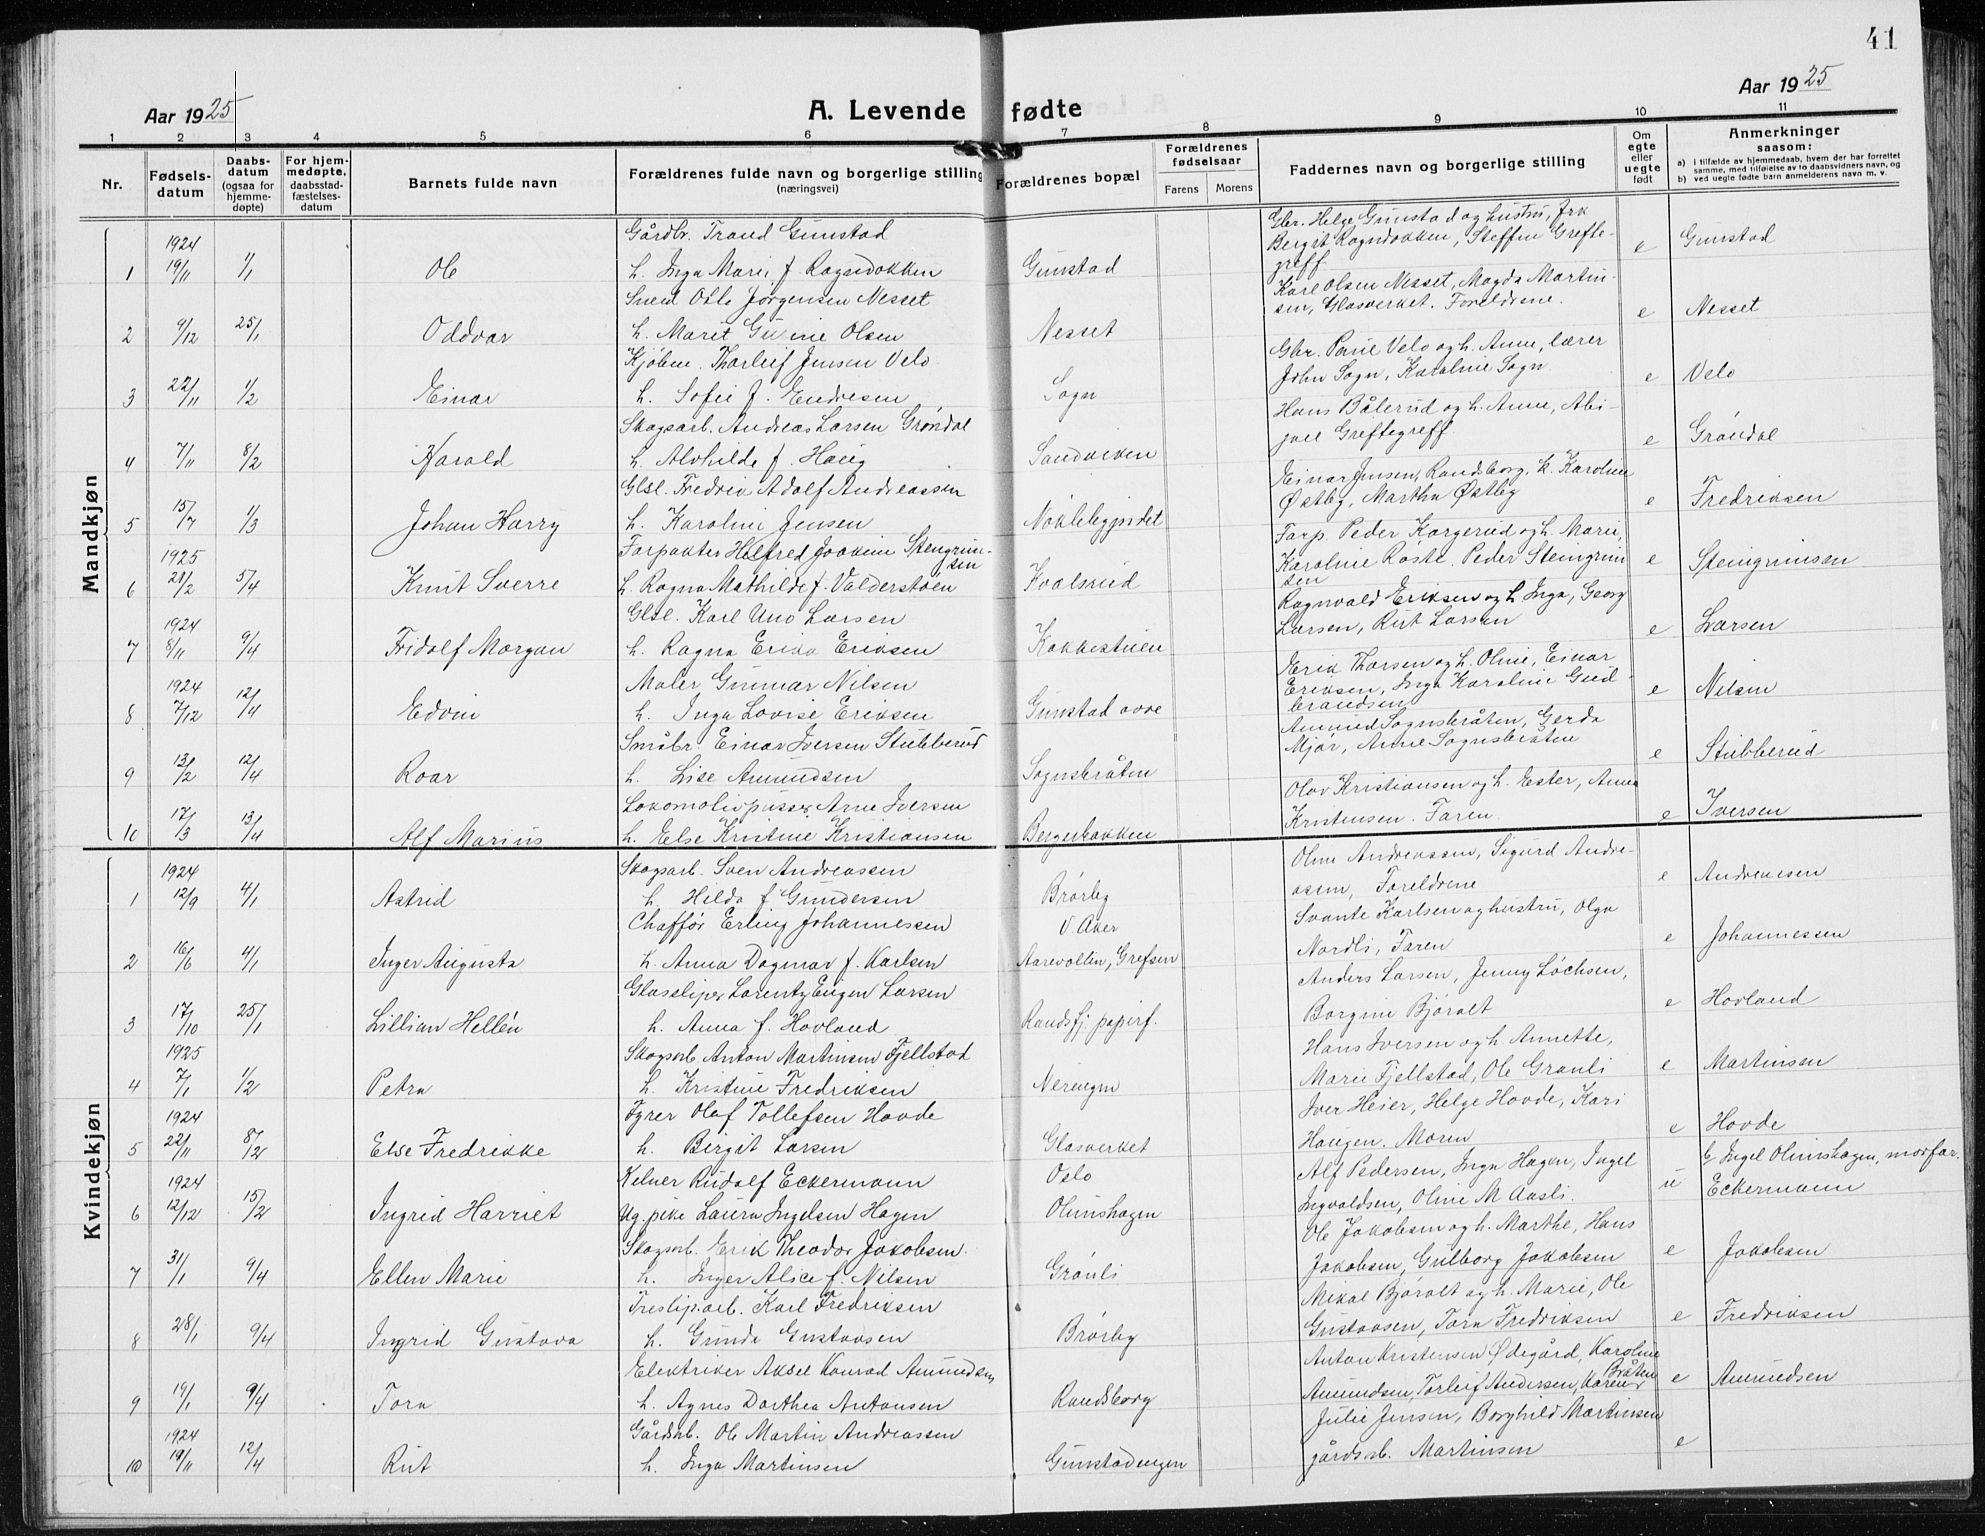 41
Aar 1925
A. Levende fødte
Aar 1925
1 2 3 4 5 6 7 8 9 10 11
Nr.
Fødsels-
datum
Daabs-
datum
(ogsaa for
hjemme-
døpte)
For hjem-
medøpte,
daabsstad-
fæstelses-
datum
Barnets fulde navn
Forældrenes fulde navn og borgerlige stilling
(næringsvei)
Forældrenes bopæl
Forældrenes
fødselsaar
Farens Morens
Faddernes navn og borgerlige stilling
Om
egte
eller
uegte
født
Anmerkninger
saasom:
a) i tilfælde av hjemmedaab, hvem der har forrettet
samme, med tilføielse av to daabsvidners navn, og
b) ved uegte fødte barn anmelderens navn m. v.
Mandkjøn
Gårdbr. Trond Gunstad
Gbr. Helge Gunstad og hustru, frk
Bergit Rogndokken, Steffen Grefte-
greff.
1 1924 19/11 1/1 Ole h. Inga Marie f. Rognedokken Gunstad e Gunstad
Sned Osло Jørgensen Nesset
Karl Olsen Nesset, Magda Martin-
sen, Glasverket. Foreldrene.
2 9/12 25/1 Oddvar h. Marit Gurine Olsen Nesset e Nesset
Kjøbm. Thorleif Jensen Velo
Gbr. Paul Velo og h. Anne, lærer
John Sogn, Karoline Sogn
3 22/11 1/2 Einar h. Sofie f. Endresen Sogn e Velo
Skogsarb. Andreas Larsen Grøndal
Hans Bålerud og h. Anne, Abi-
jael Greftegreff
4 7/11 8/2 Harald h. Alvhilde f. Haug Sandviken e Grøndal
Glsl. Fredrik Adolf Andreassen
Einar Jensen, Randsborg, k. Karoline
Østby, Martha Østby
5 15/7 1/3 Johan Harry h. Karoline Jensen Nøklebyfjordet e Fredriksen
Forpakter Helfred Joakim Stengrim-
sen
Forp. Peder Korgerud og h. Marie,
Karoline Roste. Peder Steingrim
sen
6 1925 21/2 5/4 Knut Sverre h. Ragna Mathilde f. Valderstøen Kvalsrud e Steingrimsen
Glsl. Karl Uno Larsen
Ragnvald Eriksen og h Inga, Georg
Larsen, Rut Larsen
7 1924 8/11 9/4 Fridolf Morgan h. Ragna Erika Eriksen Kokkestuen e Larsen
Maler Gunnar Nilsen
Erik Thorsen og h. Oline, Einar
Eriksen, Inga Karoline Gud-
brandsen
8 1924 7/12 12/4 Edvin h. Inga Lovise Eriksen Gunstad ovre e Nilsen
Småbr. Einar Iversen Stubberud
Amund Sognsbråten, Gerda
Mjør, Anne Sognsbråten
9 13/2 12/4 Roar h. Lise Amundsen Sognsbråten e Stubberud
Lokomotivpusser Arne Iversen
Olav Kristiansen og h. Ester, Anna
Kristensen. Faren.
10 17/3 13/4 Alf Marius h. Else Kristine Kristiansen Bergerbakken e Iversen
Kvindekjøn
Skogsarb. Sven Andreassen
Oline Andreassen, Sigurd Andre-
assen, Foreldrene
1 1924 12/9 4/1 Astrid h. Hilda f. Gundersen Brørby e Andreassen
Chaffør Erling Johannessen V. Aker
Svante Karlsen og hustru, Olga
Nordli, Faren
2 16/6 4/1 Inger Augusta h. Anna Dagmar f. Karlsen Aarevollen, Grefsen e Johannessen
Glassliper Lorentz Eugen Larsen
Anders Larsen, Jenny Løchsen,
Borgine Bjøralt
3 17/10 25/1 Lillian Hellén h. Anna f. Hovland Randsfj. papirf. e Hovland
Skogsarb. Anton Martinsen Fjellstad
Hans Iversen og h. Annette,
Marie Fjellstad, Ole Granli
4 1925 7/1 1/2 Petra h. Kristine Fredriksen Nerengen e Martinsen
Fyrer Olaf Tollefsen Hovde
Iver Heier, Helge Hovde, Kari
Haugen. Moren
5 1924 22/11 8/2 Else Fredrikke h. Birgit Larsen Glasverket e Hovde
Kelner Rudolf Eckermann Oslo
Alf Pedersen, Inga Hagen, Ingel
Ingvaldsen, Oline M Aasli.
b/ Ingel Olimshagen, morfar.
6 1924 12/12 15/2 Ingrid Harriet Ug. pike Laura Ingelsen Hagen Olimshagen u Eckermann
Skogsarb. Erik Theodor Jakobsen
Ole Jakobsen og h. Marthe, Hans
Jakobsen, Gulborg Jakobsen
7 31/1 9/4 Ellen Marie h. Inger Alice f. Nilsen Grønli e Jakobsen
Tresliparb. Karl Fredriksen
Mikal Bjøralt og h. Marie, Ole
Gustavsen, Tora Fredriksen
8 28/1 9/4 Ingrid Gustava h. Gunda Gustavsen Brørby e Fredriksen
Elektriker Aksel Konrad Amundsen
Anton Kristensen Ødegård, Karoline
Amundsen, Torleif Andersen, Karen Bråten
9 19/1 9/4 Tora h. Agnes Dorthea Antonsen Randsborg e Amundsen
Gårdsb. Ole Martin Andreassen
Julie Jensen, Borghild Martinsen
gårdsb. Martinsen
10 1924 19/11 12/4 Rut h. Inga Martinsen Gunstadengen e